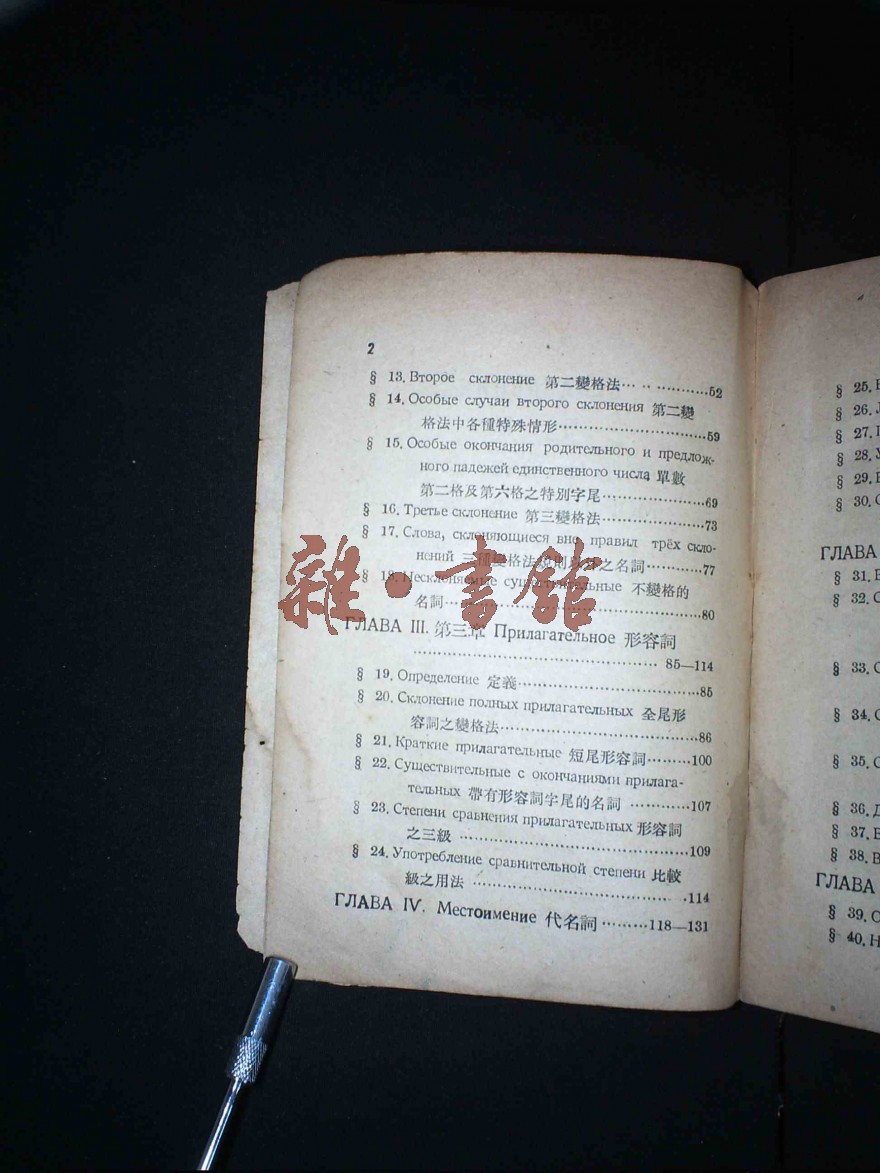 2
§ 13. Второе склонение 第二變格法… .. …………52
§ 14. Особые случаи второго склонения 第二變
格法中各種特殊情形………………………59
§ 15. Особые окончания родительного и предлож-
ного падежей единственного числа 單數
第二格及第六格之特別字尾………………69
§ 16. Третье склонение 第三變格法………………73
§ 17. Слова, склоняющиеся вне правил трёх скло-
нений 三種變格法規則以外之名詞…………77
§ 18. Несклоняемые существительные 不變格的
名詞……………………………………80
ГЛАВА III. 第三章 Прилагательное 形容詞
…………………………………… 85—114
§ 19. Определение 定義…………………………85
§ 20. Склонение полных прилагательных 全尾形
容詞之變格法……………………………86
§ 21. Краткие прилагательные 短尾形容詞………100
§ 22. Существительные с окончаниями прилага-
тельных 帶有形容詞字尾的名詞 …………107
§ 23. Степени сравнения прилагательных 形容詞
之三級 …………………………………109
§ 24. Употребление сравнительной степени 比較
級之用法 ………………………………114
ГЛАВА IV. Местоимение 代名詞………118—131
雜·書館
§ 25.
§ 26.
§ 27.
§ 28.
§ 29.
§ 30.
ГЛАВА
§ 31.
§ 32.
§ 33.
§ 34.
§ 35.
§ 36.
§ 37.
§ 38.
ГЛАВА
§ 39.
§ 40.